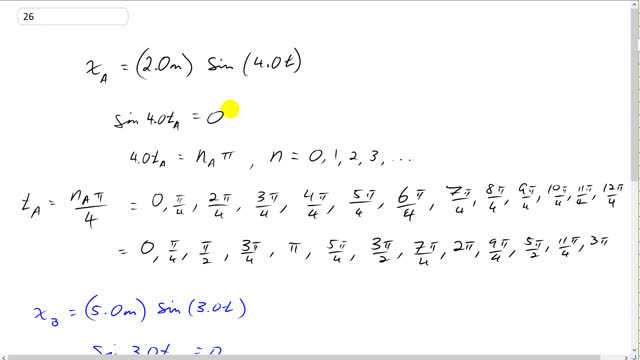 26
x_A = (2.0m) sin(4.0t)
sin 4.0t_A = 0
4.0t_A = n_A π , n = 0, 1, 2, 3, ...
t_A = n_A π/4 = 0, π/4, 2π/4, 3π/4, 4π/4, 5π/4, 6π/4, 7π/4, 8π/4, 9π/4, 10π/4, 11π/4, 12π/4
= 0, π/4, π/2, 3π/4, π, 5π/4, 3π/2, 7π/4, 2π, 9π/4, 5π/2, 11π/4, 3π
x_B = (5.0m) sin(3.0t)
sin 3.0t = 0